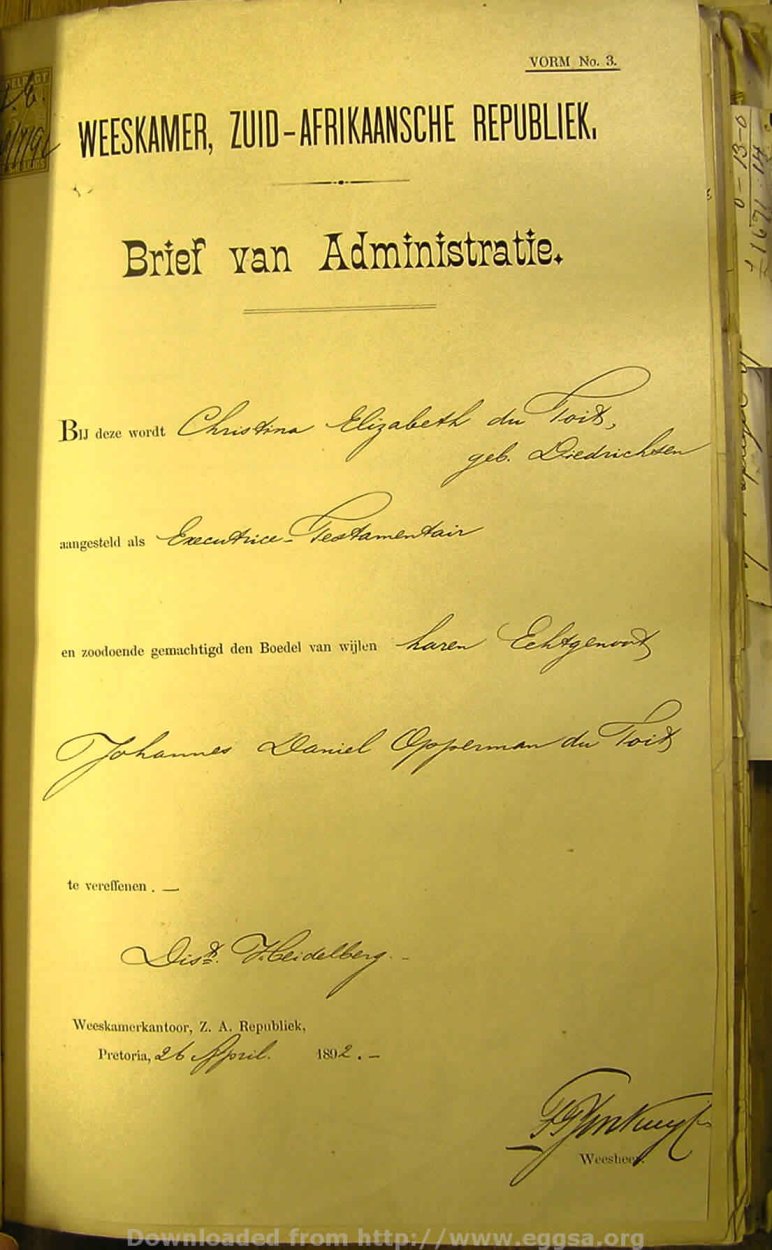 VORM No. 3.
WEESKAMER, ZUID-AFRIKAANSCHE REPUBLIEK.
Brief van Administratie.
BIJ deze wordt Christina Elizabeth du Toit,
geb. Diedrichsen
aangesteld als Executrice-Testamentair
en zoodoende gemachtigd den Boedel van wijlen haren Echtgenoot
Johannes Daniel Opperman du Toit
te vereffenen . —
Dist. Heidelberg. -
Weeskamerkantoor, Z. A. Republiek,
Pretoria, 26 April. 1892. -
Weesheer.
0-13-0
Downloaded from http://www.eggsa.org